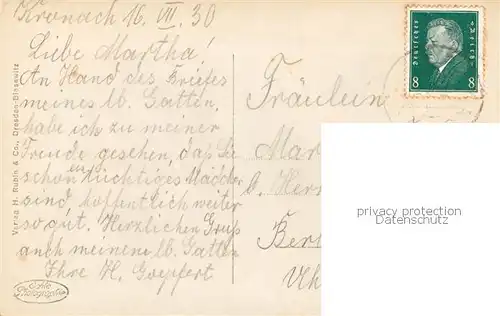 Kronach 16. VII. 30
Liebe Martha!
An Hand des Briefes
meines lb. Gatten,
habe ich zu meiner
Freude gesehen, daß Sie
schon ein tüchtiges Mädchen
sind hoffentlich weiter
so gut. Herzlichen Gruß
auch meinem lb. Gatten
Ihre H. Goepfert
Echte Photographie
Verlag H. Rubin & Co., Dresden-Blasewitz
Deutsches Reich
8 8
Fräulein
Mar
b. Herr
Ber
Uh
privacy protection
Datenschutz